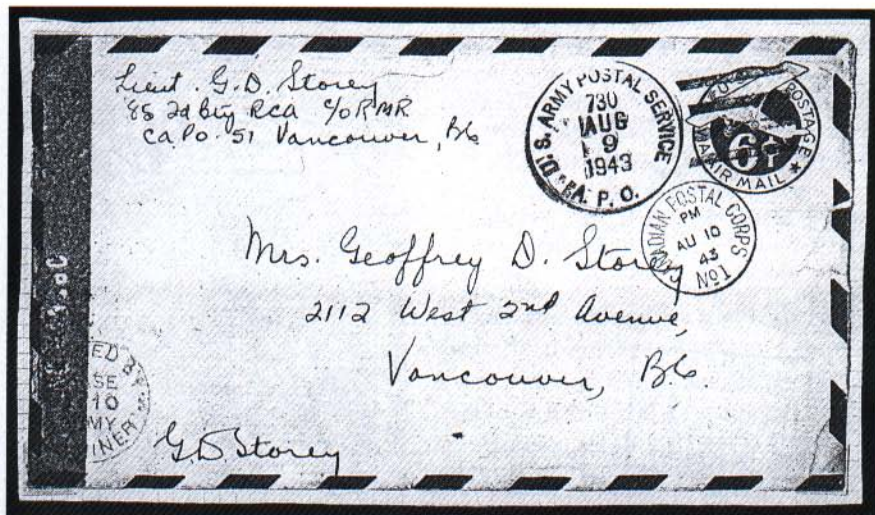 Lieut. G. D. Storey
85 2d bty RCA c/o RMR
CAPO 51 Vancouver, BC
U. S. ARMY POSTAL SERVICE
730
AUG
9
1943
A. P. O.
POSTAGE
6
AIR MAIL
CANADIAN POSTAL CORPS
PM
AU 10
43
No 1
Mrs. Geoffrey D. Storey
2112 West 2nd Avenue,
Vancouver, BC.
ED BY
SE
10
MY
INER
G. D Storey